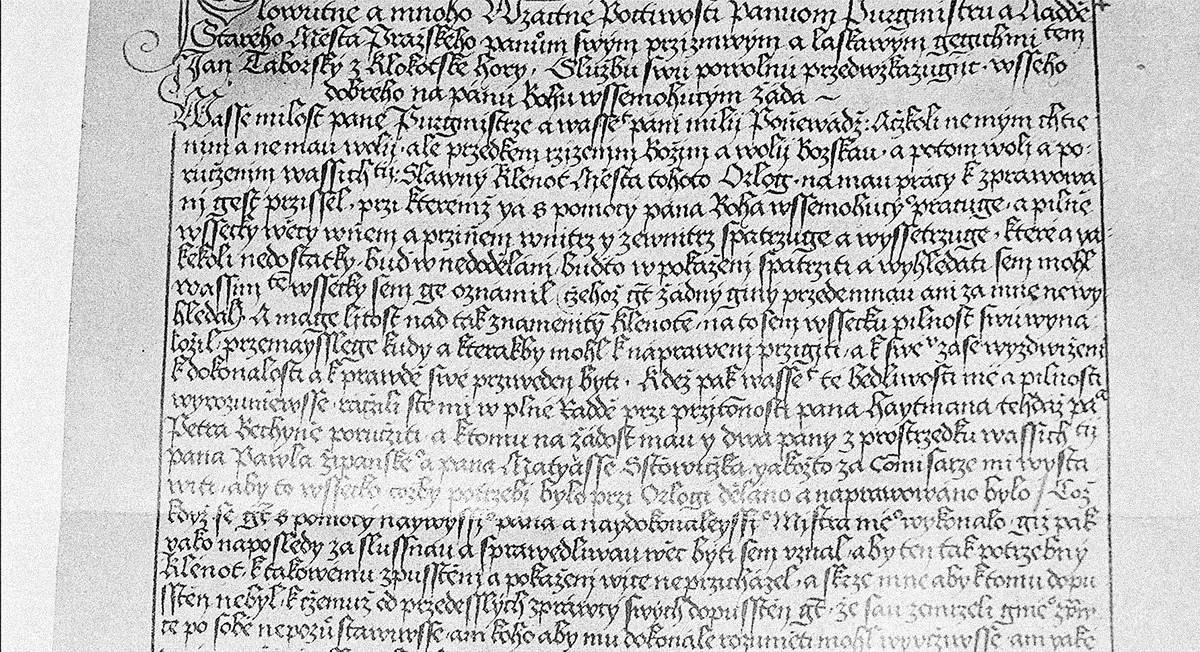 Slowutne a mnoho Wzactne Poctiwosti Panuom Purgmistru a Raddě
Starého Města Pražského panům swým przizniwym a laskawym gegichmi tem
Jan Táborský z Klokocské Hory, Službu swu powolnú przedwzkazugic. wsseho
dobrého na pánu Bohu wssemohucym žádá ~
Wasse milost pane Purgmistrze a wasse páni milij Poněwádž: Ačkoli ne mým chtie
nim a ne mau wolij. ale przedkem rzizenim Božim a wolij Bozskau. a potom wolj a po-
ručenim wassich tij: Slawny klenot Města tohoto Orlog. na mau prácy k zprawowa
ni gest przissel. przi kteremž ya s pomocy pána Boha wssemohucyᵒ pracuge. a pilně
wssecky wěcy w ňem a przi ňem wnitrz y zewnitrz spatrzuge a wyssetrzuge. které a ya-
kékoli nedostatky. bud w nedoděláni budto w pokaženi spatrziti a wyhledati sem mohl
wassim te wssecky sem ge oznamil. czehož gt žádny giny przedemnau ani za mne newy-
hledal. A mage litost nad tak znamenitý klenotē. na to sem wssecku pilnost swú wyna
ložil. przemaysslege kudy a kterakby mohl k naprawenj przigiti. a k swé zase wyzdwiženi
k dokonalosti a k prawdě swé przweden byti. Kdež pak wasse te bedliwosti mé a pilnosti
wyrozuměwsse. ráčili ste mi w plné Raddě przi przitōnosti pana Haytmana tehdáž pa
Petra Bechyně poručiti. a k tomu na žádost mau y dwa pány z prostrzedku wassich tij
pana Pawla Žipanské a pana Matyásse Ostowitzka. yakožto za Comisarze mi wysta
witi. aby to wssecko cozby potrzebi bylo przi Orlogi děláno a naprawowano bylo / Což
když se gt s pomocy naywyssiᵒ pana a naydokonaleyssiᵒ Mistra méᵒ wykonalo. giž pak
yako naposledy za slussnau a sprawedliwau wěc byti sem uznal. aby ten tak potrzebny
klenot. k takowemu zpusstěni a pokaženj wice neprzicházel. a skrze mne aby k tomu dopu
sstěn nebyl. k czemuž od przedesslých zpráwcý swých dopusstěn gt. že sau zemrzeli giné
te po sobě nepozůstawiwsse. ani koho aby mu dokonale rozuměti mohl wywčiwsse. ani yaké